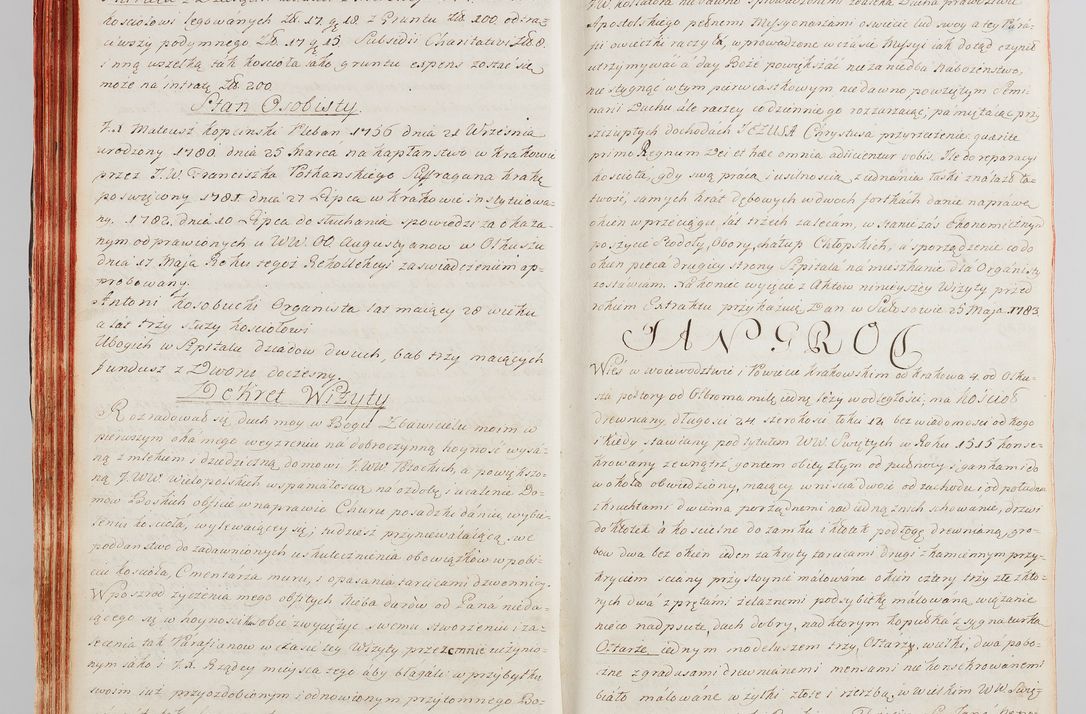 kościołowi legowanych Zł. 17 g 18. z Gruntu Zł. 200. od sta=
ciwszy podymnego Zł. 17 g 13 Subsidii Charitativi Zł. 8.
i inną wszelką tak kościoła iako gruntu expens zostać się
może na intratę Zł. 200
Stan Osobisty.
J.X. Mateusz Kopciński Pleban 1756 dnia 21 Września
urodzony 1780. dnia 25 Marca na kapłaństwo w Krakowie
przez J.W. Franciszka Potkańskiego Suffragana krakꝫ
poswięcony 1781 dnia 27 Lipca w krakowie instytuowa-
ny. 1782. dnia 10 Lipca do słuchania spowiedzi za okaza-
nym odprawionych u WW. OO. Augustyanow w Olkuszu
dnia 17 Maja Roku tegoż Rekollekcyi zaswiadczeniem ap-
probowany.
Antoni Kosobucki Organista lat maiący 28 wieku
a lat trzy służy kościołowi
Ubogich w Szpitalu dziadow dwuch, bab trzy maiących
fundusz z Dworu doczesny.
Dekret Wizyty
Rozradował się duch moy w Bogu Zbawicielu moim w
pierwszym oka mego weyzreniu na dobroczynną hoyność wyssa-
ną z mlekiem i dziedziczną domowi J.WW. a powiększo-
ną J.WW. Wielopolskich wspaniałością na ozdobę i ocalenie Do-
mow Boskich obficie w naprawie Churu posadzki daniu, wybie-
leniu kościoła, wylewaiącey się; tudzież przyniewalaiącą swe
poddaństwo do zadawnionych uskutecznienia obowiązkow w pobi-
ciu kościoła, Cmentarza muru, i opasania tarcicami dzwonnicy.
W posrzod życzenia mego obfitych Nieba darow od Pana nieda-
iącego się w hoyności sobie zwyciężyć swemu stworzeniu i za-
lecenia tak Parafianom w czasie tey Wizyty przezemnie uczynio-
nym iako i J.X. Rządcy mieysca tego aby błagali w przybytku
swoim iuż przyozdobionym i odnowionym przytomnego Bo-
Apostolskiego pełnemi Missyonarzami oswiecić lud swoy a tey Para-
fii owieczki raczył, wprowadzone w czasie Missyi iak dotąd czynił
utrzymywać a day Boże powiększać nie zaniedba Nabożeństwo,
nie stygnąc w tym pierwiastkowym nie dawno powziętym w Semi-
narii Duchu ale raczey codziennie go rozżarzaiąc, pamiętaiąc przy
szczupłych dochodach JEZUSA Chrystusa przyrzeczenie quærite
primo Regnum Dei et hæc omnia adiicientur vobis. Że do reparacyi
kościoła, gdy swą pracą i usilnością z iednania łaski znalazł ła-
twość, samych krat dębowych w dwoch fortkach danie naprawę
okien w przeciągu lat trzech zalecam, w stanie zaś Ekonomicznym
poszycie Stodoły, Obory, chałup Chłopskich, a sporządzenie co do
okien pieca drugiey strony Szpitala na mieszkanie dla Organisty
zostawiam. Na koniec wyięcie z Aktow ninieyszey Wizyty przed
rokiem Extraktu przykazuię. Dan w Sułoszowie 25 Maja 1783
JANGROT
Wieś w woiewodztwie i Powiecie krakowskim od krakowa 4. od Olku-
sza połtory od Olbroma milę iedną leży w odległości; ma KOŚCIOŁ
drewniany, długości 24 szerokości łokci 12 bez wiadomości od kogo
i kiedy stawiany pod tytułem WW. Swiętych w Roku 1515 konse-
krowany zewnątrz gontem obity złym od pułnocy, z gankami do-
wokoła obwiedziony, maiący wniscia dwoie od zachodu i od południa
z kruchtami dwiema porządnemi nad iedną z nich schowanie, drzwi
do kłotek a kościelne do zamku i kłotek podłogę drewnianą, gro-
bow dwa bez okien ieden zakryty tarcicami drugi z kamiennym przy-
kryciem sciany przystoynie malowane okien cztery trzy złe z kto-
rych dwa z prętami żelaznemi podsybitkę malowaną wiązanie
nieco nadpsute, dach dobry, nad ktorym kopułka z sygnaturką
Ołtarze iednym modeluszem trzy, Ołtarze, wielki, dwa pobo-
czne z gradusami drewnianemi mensami nie konsekrowanemi
biało malowane w żyłki złote i rzezbą, w wielkim WW. Swię-